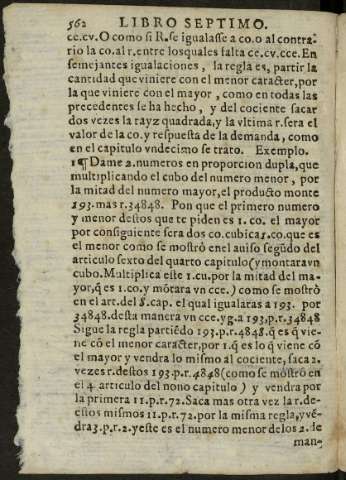 562 LIBRO SEPTIMO.
ce.cv. O como si R. se igualasse a co. o al contra-
rio la co. al r. entre los quales falta ce.cv.cce. En
semejantes igualaciones, la regla es, partir la
cantidad que viniere con el menor caracter, por
la que viniere con el mayor, como en todas las
precedentes se ha hecho, y del cociente sacar
dos vezes la rayz quadrada, y la vltima r. sera el
valor de la co. y respuesta de la demanda, como
en el capitulo vndecimo se trato. Exemplo.
1 ¶ Dame 2. numeros en proporcion dupla, que
multiplicando el cubo del numero menor, por
la mitad del numero mayor, el producto monte
193. mas r. 34848. Pon que el primero numero
y menor destos que te piden es 1. co. el mayor
por consiguiente sera dos co. cubica 1. co. que es
el menor como se mostrò en el auiso segũdo del
articulo sexto del quarto capitulo (y montara vn
cubo. Multiplica este 1. cu. por la mitad del ma-
yor, q̃ es 1. co. y mõtara vn cce.) como se mostrò
en el art. del 8. cap. el qual igualaras a 193. por
34848. desta manera vn cce. yg. a 193. p. r. 34848
Sigue la regla partiẽdo 193. p. r. 4848. q̃ es q̃ vie-
ne cõ el menor caracter, por 1. q̃ es lo q̃ viene cõ
el mayor y vendra lo mismo al cociente, saca 2.
vezes r. destos 193. p. r. 4848 (como se mostrò en
el 4 articulo del nono capitulo) y vendra por
la primera 11. p. r. 72. Saca mas otra vez la r. de-
estos mismos 11. p. r. 72. por la misma regla, y vẽ-
dra 3. p. r. 2. y este es el numero menor de los 2. de
man-